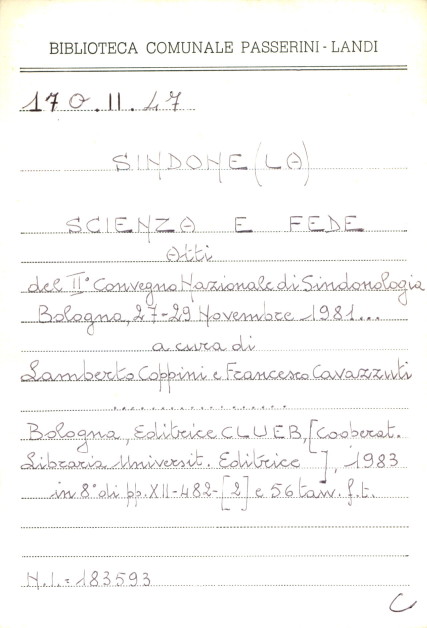 BIBLIOTECA COMUNALE PASSERINI - LANDI
170.II.47
SINDONE (LA)
SCIENZA E FEDE
Atti
del II° Convegno Nazionale di Sindonologia
Bologna, 27-29 Novembre 1981...
a cura di
Lamberto Coppini e Francesco Cavazzuti
..................
Bologna, Editrice CLUEB, [Cooperat.
Libraria Universit. Editrice ], 1983
in 8° di pp. XII-482-[2] e 56 tav. f.t.
N.I.=183593
C